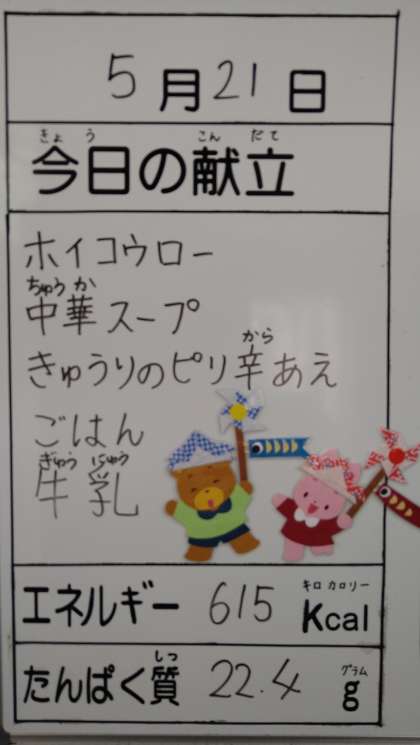 5月21日
きょう こんだて
今日の献立
ホイコウロー
ちゅうか
中華スープ
から
きゅうりのピリ辛あえ
ごはん
ぎゅうにゅう
牛乳
キロカロリー
エネルギー 615 Kcal
しつ グラム
たんぱく質 22.4 g